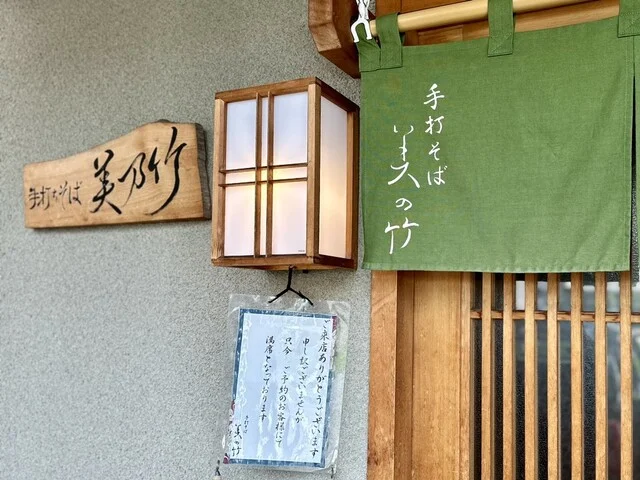 手打ちそば 美乃竹
手打そば
美の竹
ご来店ありがとうございます
申し訳ございませんが
只今 ご予約のお客様にて
満席となっております
手打そば
美の竹